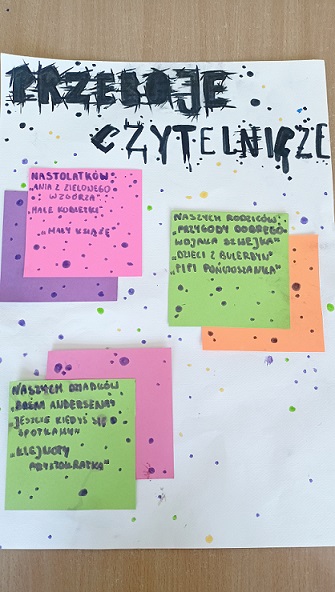 PRZEBOJE
CZYTELNICZE
NASTOLATKÓW:
„ANIA Z ZIELONEGO
WZGÓRZA"
„MAŁE KOBIETKI"
„MAŁY KSIĄŻĘ
NASZYCH RODZICÓW:
„PRZYGODY DOBREGO
WOJAKA SZWEJKA"
„DZIECI Z BULERBYN"
„PIPI POŃCZOSZANKA"
NASZYCH DZIADKÓW
ANDERSENA"
JESZCZE KIEDYŚ SIĘ
SPOTKAMY"
„KLEJNOTY
ARYSTOKRATKA"